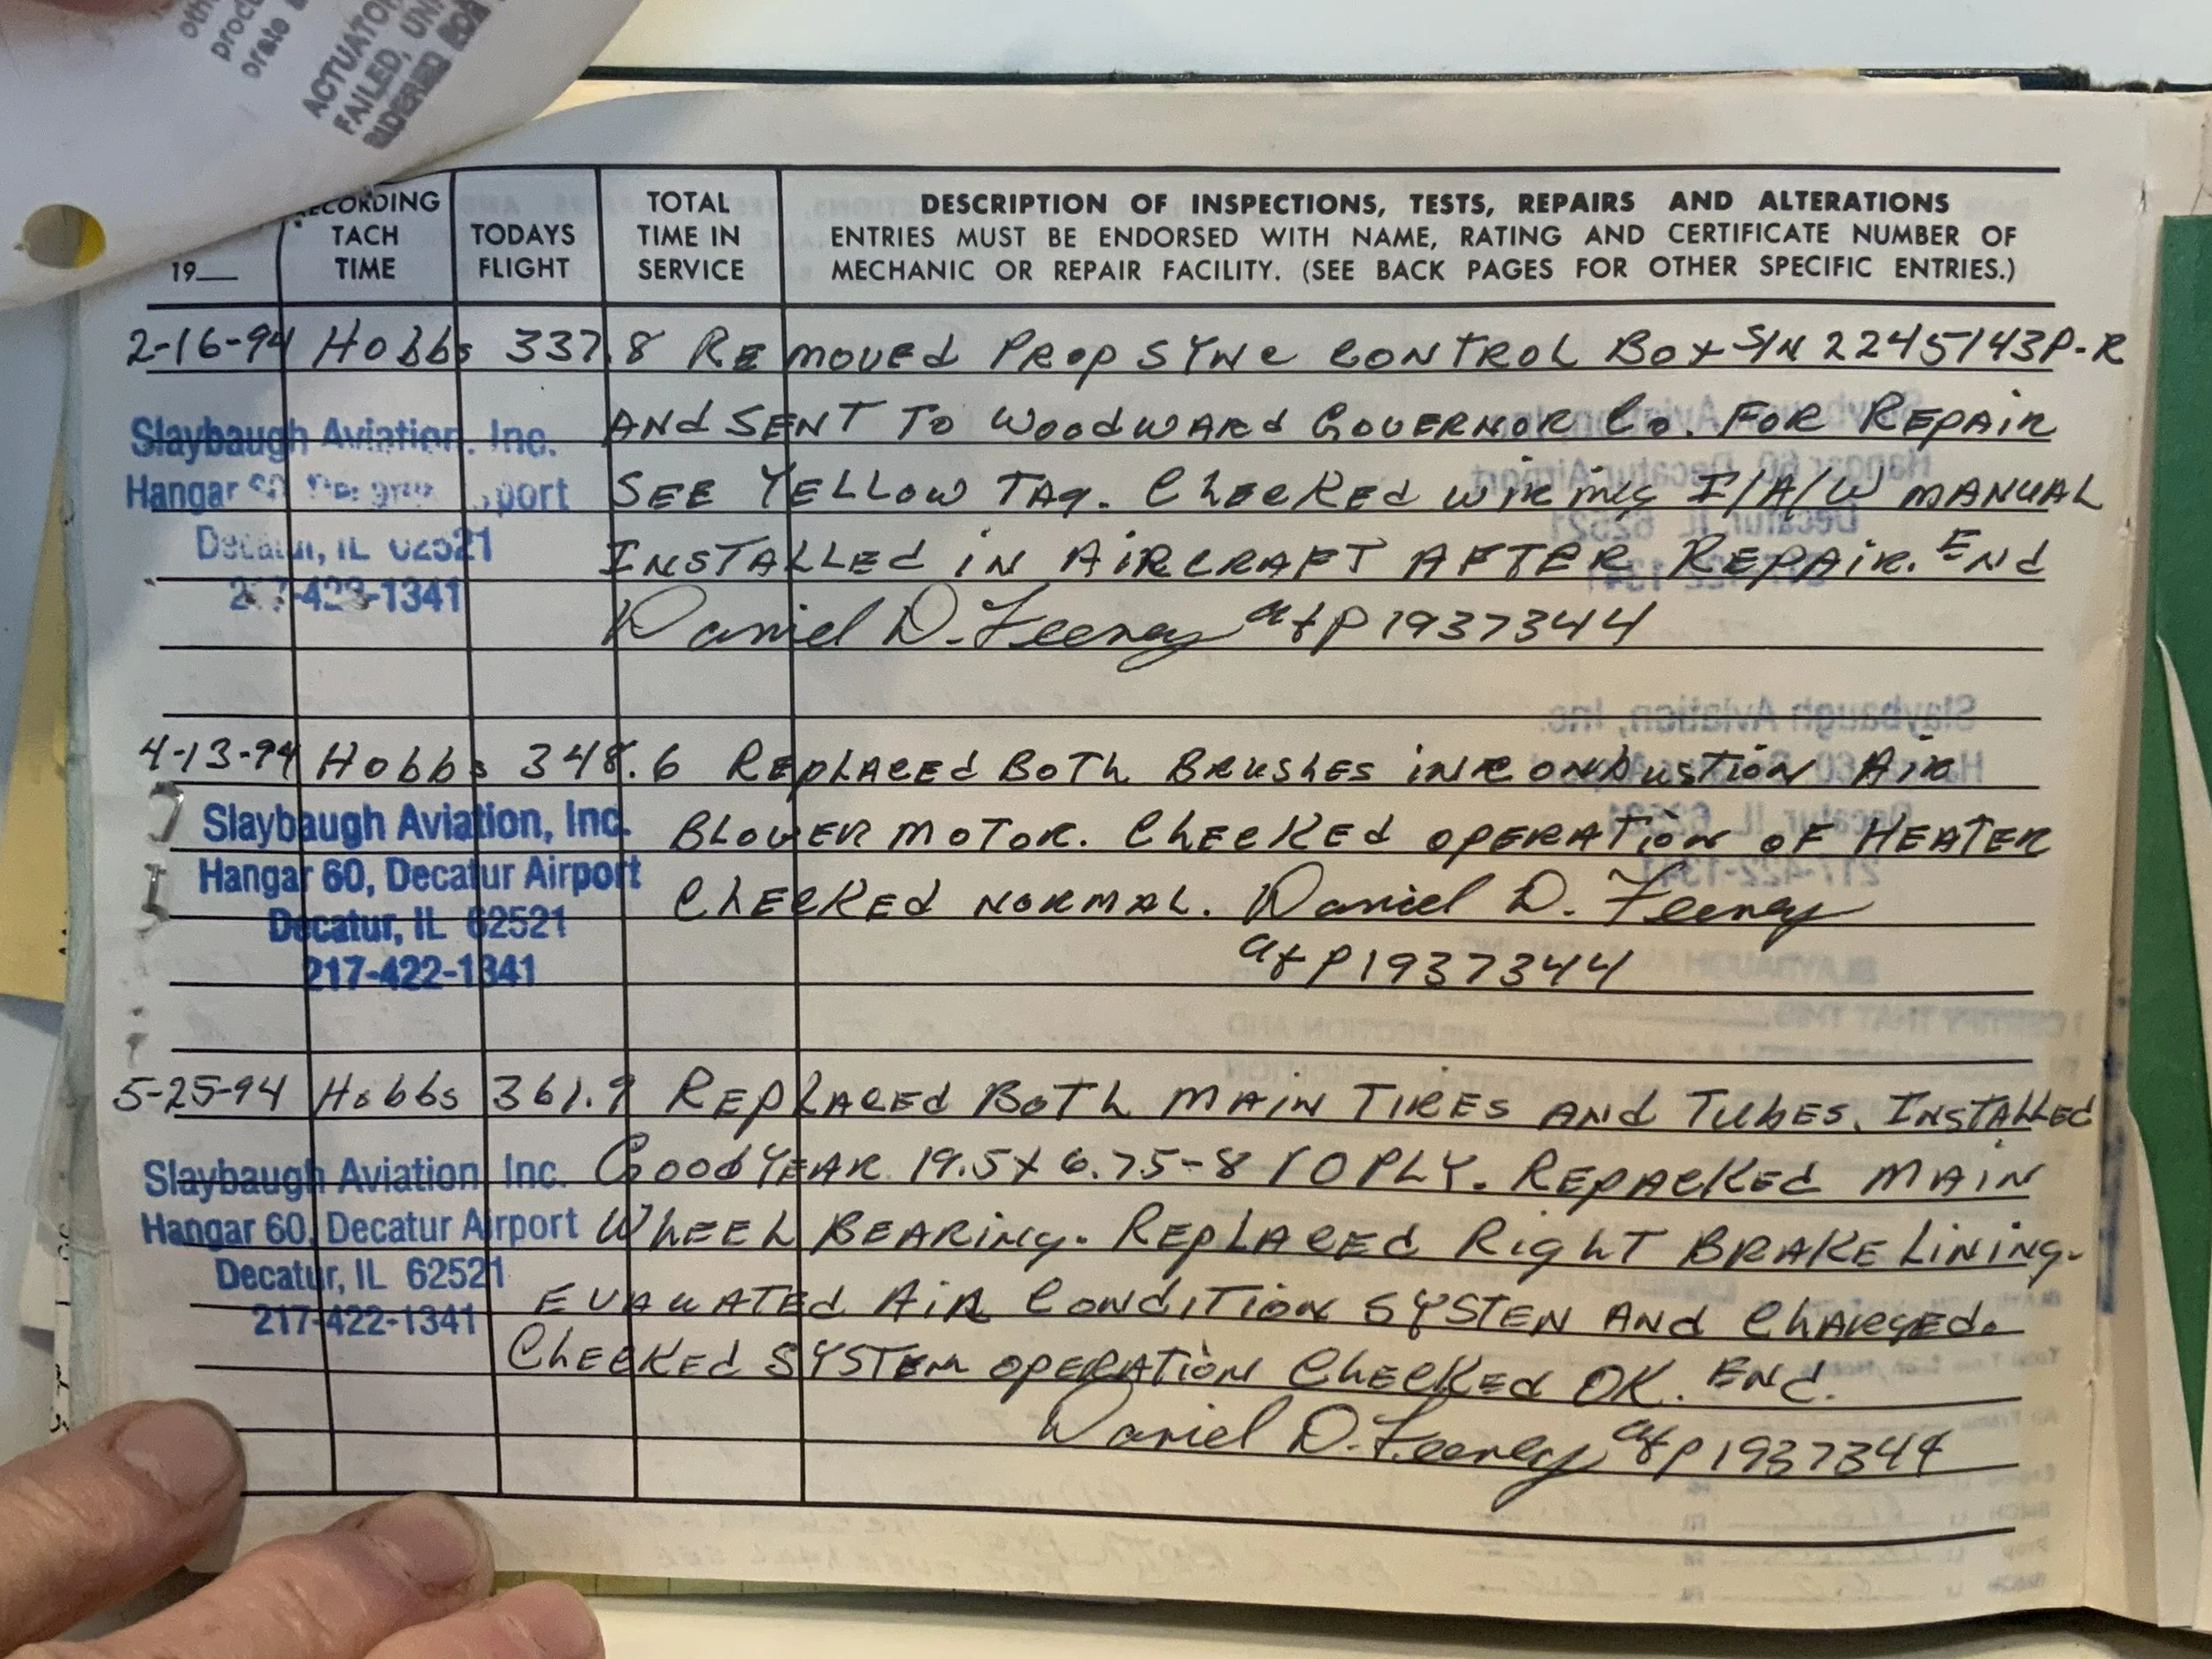 ACTUATOR
FAILED, UN
RECORDING
TACH
TIME
19__
TODAYS
FLIGHT
TOTAL
TIME IN
SERVICE
DESCRIPTION OF INSPECTIONS, TESTS, REPAIRS AND ALTERATIONS
ENTRIES MUST BE ENDORSED WITH NAME, RATING AND CERTIFICATE NUMBER OF
MECHANIC OR REPAIR FACILITY. (SEE BACK PAGES FOR OTHER SPECIFIC ENTRIES.)
2-16-94 Hobbs 337.8 Removed Prop Sync Control Box S/N 2245143P-R
And Sent To Woodward Governor Co. For Repair
See Yellow Tag. Checked wiring I/A/W manual
Installed in Aircraft After Repair. End
Daniel D. Feeney a+p 1937344
Slaybaugh Aviation, Inc.
Hangar 60 Decatur Airport
Decatur, IL 62521
217-422-1341
4-13-94 Hobbs 348.6 Replaced Both Brushes in Conbustion Air
Blower Motor. Checked operation of Heater
Checked normal. Daniel D. Feeney
a+p 1937344
Slaybaugh Aviation, Inc.
Hangar 60, Decatur Airport
Decatur, IL 62521
217-422-1341
5-25-94 Hobbs 361.9 Replaced Both Main Tires and Tubes. Installed
Goodyear 19.5x6.75-8 10 PLY. Repacked Main
Wheel Bearing. Replaced Right Brake Lining.
Evauated Air Condition Systen And Charged.
Checked System operation Checked OK. End.
Daniel D. Feeney a+p 1937344
Slaybaugh Aviation, Inc.
Hangar 60, Decatur Airport
Decatur, IL 62521
217-422-1341